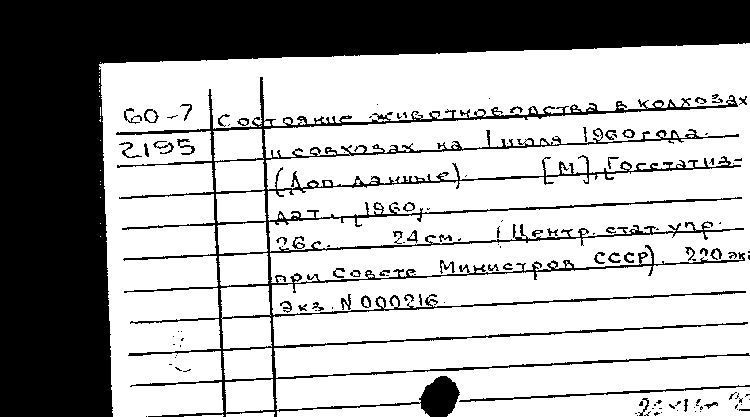 60-7 Состояние животноводства в колхозах
2195 и совхозах на 1 июля 1960 года.
(Доп. данные). [М], [Госстатиз-
дат, [1960].
26 с. 24 см. (Центр. стат. упр.
при Совете Министров СССР). 220 экз
Экз. N 000216.